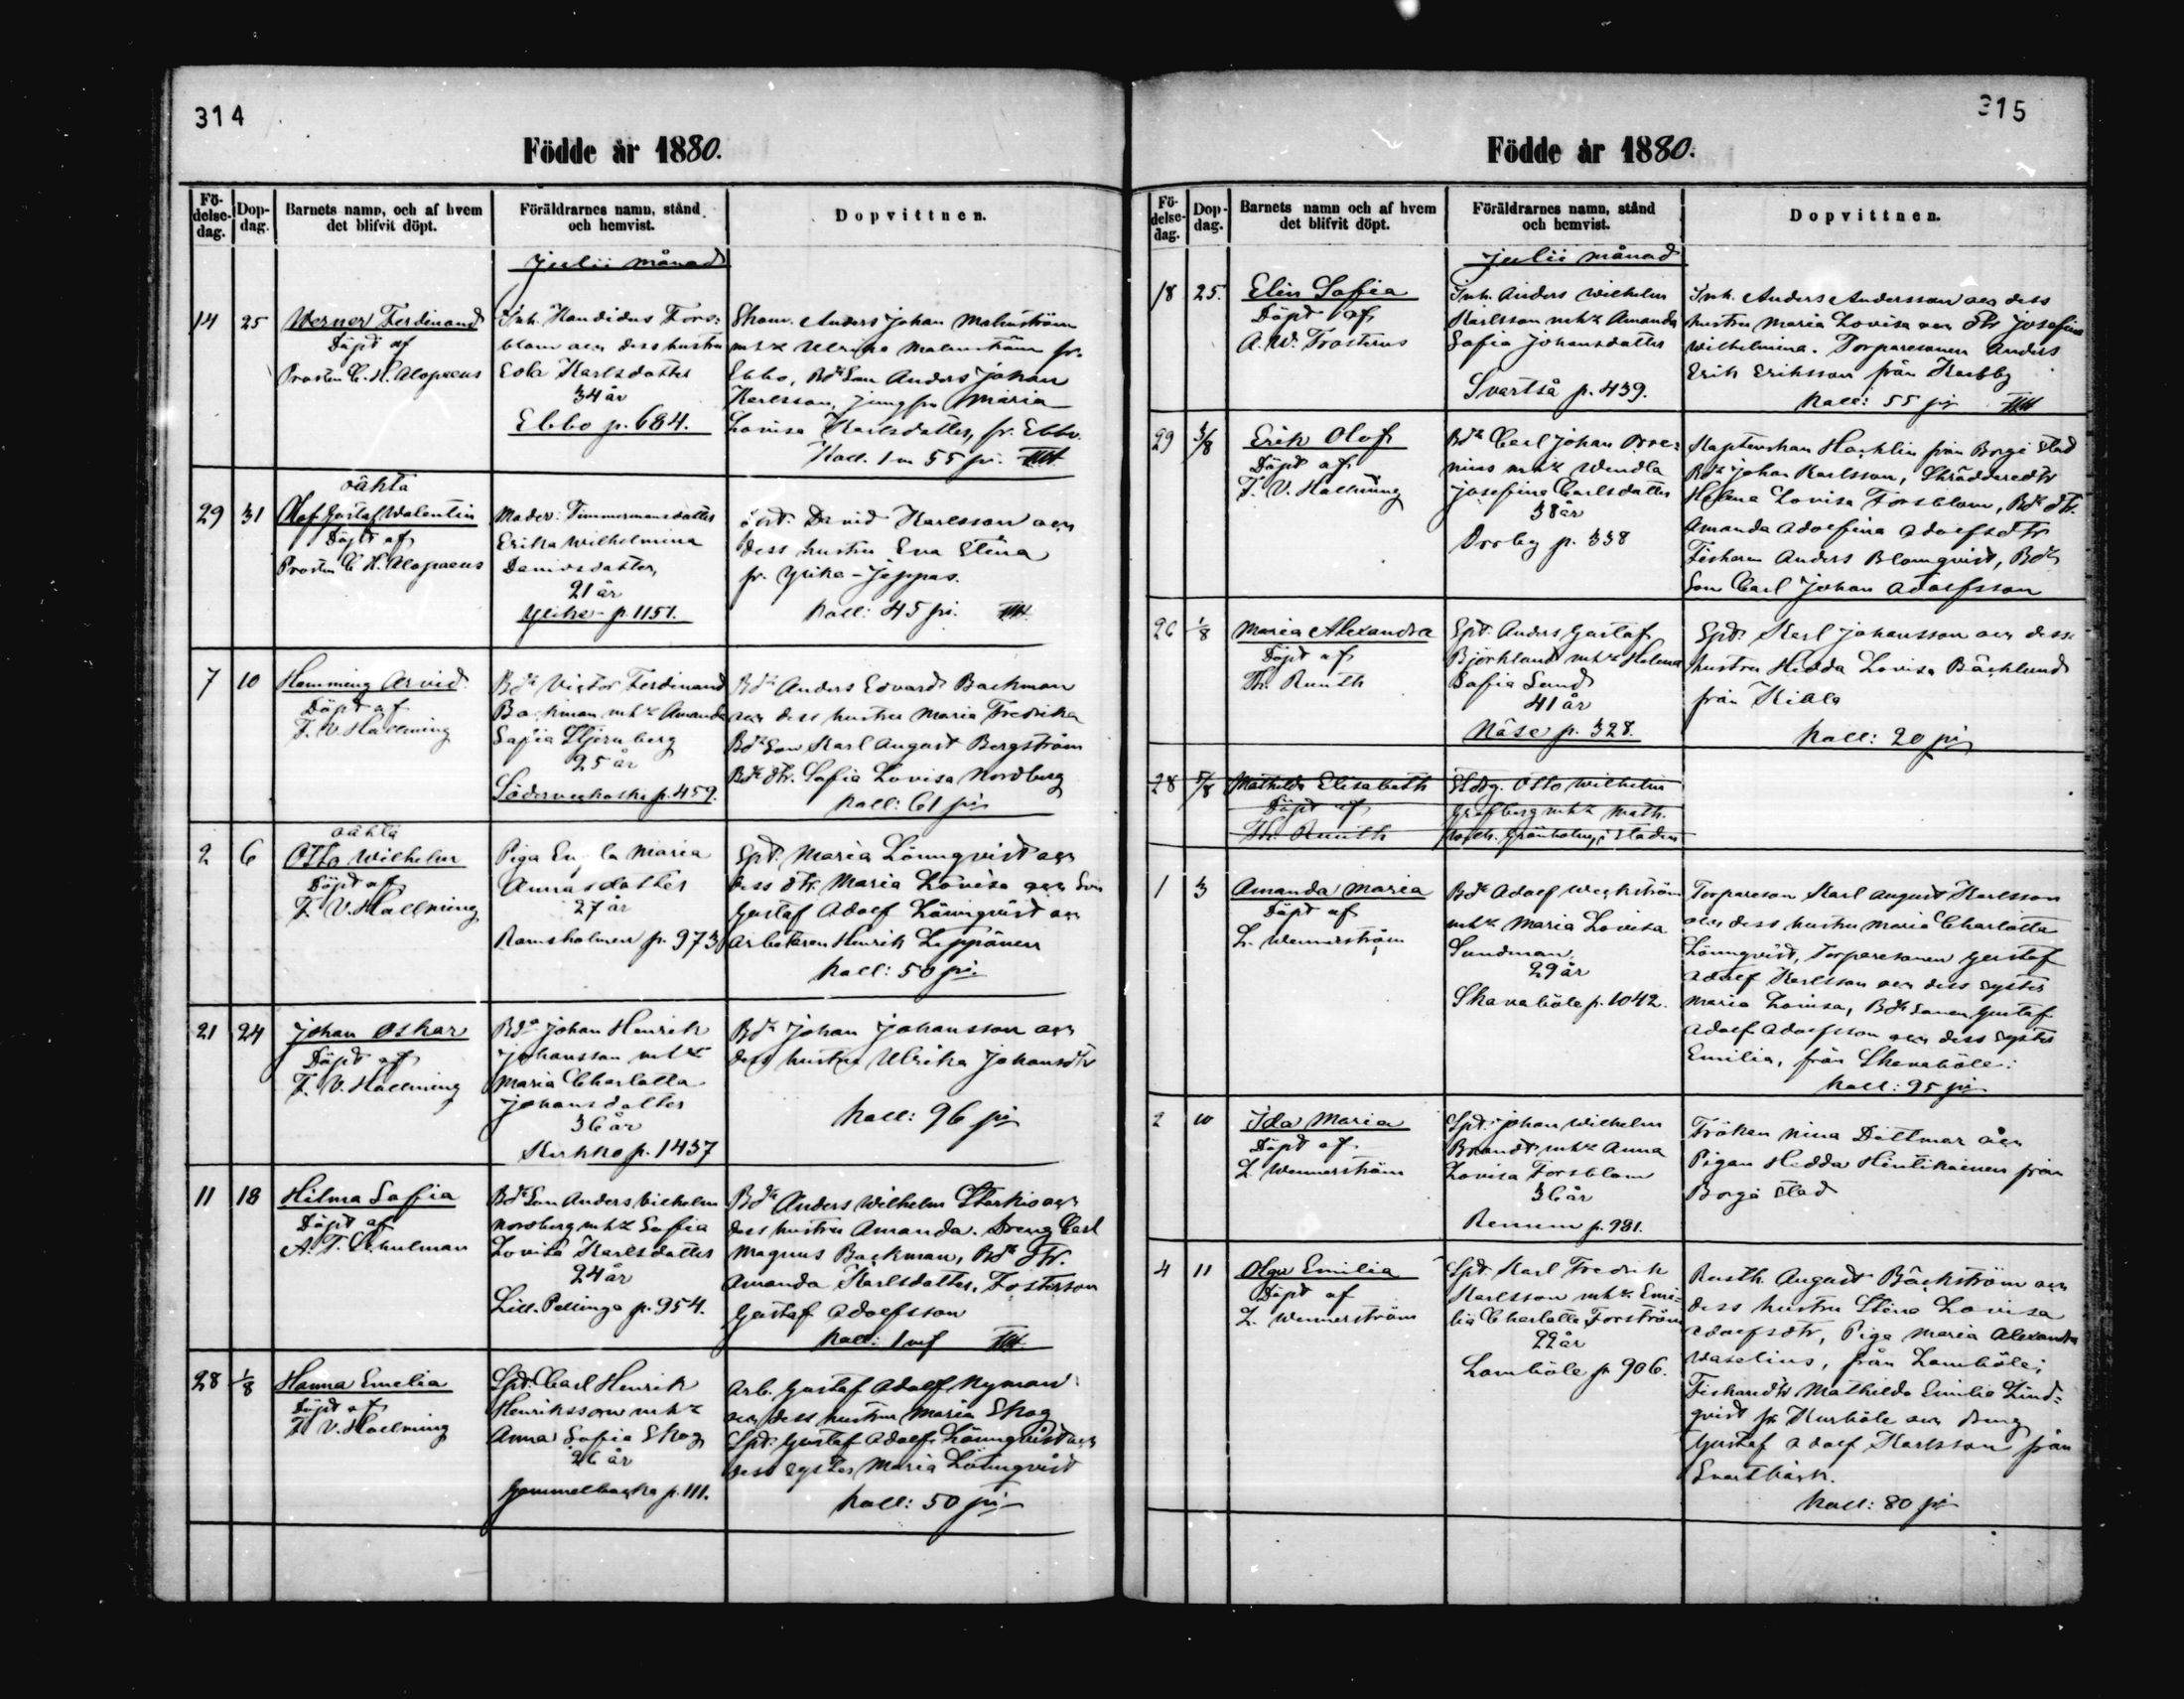 314
Födde år 1880.
Fö-
delse-
dag.
Dop-
dag.
Barnets namn, och af hvem
det blifvit döpt.
Föräldrarnes namn, stånd
och hemvist.
Dopvittnen.
Julii månad
14 25
Werner Ferdinand
Döpt af
Prosten C. H. Alopaeus
Inh. Kandidus Fors-
blom och dess hustru
Eva Karlsdotter
34 år
Ebbo p. 684.
Anders Johan Malmström
mhk Ulrika Malmström fr.
Ebbo, Bds Son Anders Johan
Karlsson, jungfru Maria
Lovisa Karlsdotter, fr. Ebbo.
Koll. 1 m 55 pi.
29 31
oäkta
Olof Gustaf Walentin
Döpt af
Prosten C. H. Alopaeus
Moder: Timmermansdotter
Erika Wilhelmina
Davidsdotter,
21 år
Yrike p. 1151.
David Karlsson och
dess hustru Eva Stina
fr. Yrike-Jeppas.
Koll: 45 pi.
7 10
Hemming Arvid
Döpt af
F. V. Hallming
Bdn Victor Ferdinand
Backman mhk Amanda
Sofia Stjernberg
25 år
Söderveckoski p. 459.
Bdn Anders Edvard Backman
och dess hustru Maria Fredrika
Bds Son Karl August Bergström
Bds dtr. Sofia Lovisa Nordberg
Koll: 61 pi
2 6
oäkta
Otto Wilhelm
Döpt af
F. V. Hallming
Piga Engla Maria
Annasdotter
27 år
Ramsholmen p. 973
Spt. Maria Lönnqvist och
dess dtr. Maria Lovisa och Son
Gustaf Adolf Lönnqvist och
Arbetaren Henrik Leppänen
Koll: 50 pi.
21 24
Johan Oskar
Döpt af
F. V. Hallming
Bdn Johan Henrik
Johansson mhk
Maria Charlotta
Johansdotter
36 år
Kirkko p. 1437
Bdn Johan Johansson och
dess hustru Ulrika Johansdtr
Koll: 96 pi
11 18
Hilma Sofia
Döpt af
A. T. Schulman
Bds Son Anders Vilhelm
Nordberg mhk Sofia
Lovisa Karlsdotter
24 år
Lill. Pellinge p. 954.
Bdn Anders Wilhelm Starkio och
dess hustru Amanda. Dreng Carl
Magnus Backman, Bds dtr.
Amanda Karlsdotter, Fosterson
Gustaf Adolfsson
Koll: 1 mf
28 1/8
Hanna Emelia
Döpt af
F. V. Hallming
Spt. Carl Henrik
Henriksson mhk
Anna Sofia Skog
26 år
Gammelbacka p. 111.
Arb. Gustaf Adolf Nyman
och dess hustru Maria Skog
Spt. Gustaf Adolf Lönnqvist och
dess syster Maria Lönnqvist
Koll: 50 pi
315
Födde år 1880.
Fö-
delse-
dag.
Dop-
dag.
Barnets namn och af hvem
det blifvit döpt.
Föräldrarnes namn, stånd
och hemvist.
Dopvittnen.
Julii månad
18 25.
Elin Sofia
Döpt af
A. W. Frosterus
Inh. Anders Wilhelm
Karlsson mhk Amanda
Sofia Johansdotter
Svartså p. 439.
Inh. Anders Andersson och dess
hustru Maria Lovisa och dtr Josefina
Wilhelmina. Torparesonen Anders
Erik Eriksson från Kerkby
Koll: 55 pi
29 3/8
Erik Olof
Döpt af
F. V. Hallming
Bdn Carl Johan
mhk Wendla
Josefina Carlsdotter
38 år
Orrby p. 338
från Borgå Stad
Bdn Johan Karlsson, Skräddaredtr
Helena Lovisa Forsblom, Bds dtr.
Amanda Adolfina Adolfsdtr
Fiskaren Anders Blomqvist, Bds
Son Carl Johan Adolfsson
26 1/8
Maria Alexandra
Döpt af
Th. Runth
Spt. Anders Gustaf
Björklund mhk Helena
Sofia Lund
41 år
Näse p. 328.
Spt. Karl Johansson och dess
hustru Hedda Lovisa Bäcklund
från Kiala
Koll: 20 pi
28 5/8
Mathilda Elisabeth
Döpt af
Th. Runth
Otto Wilhelm
Gräsberg mhk Math.
Grönholm, i staden
1 3
Amanda Maria
Döpt af
L. Wennerström
Bdn Adolf Weckström
mhk Maria Lovisa
Sundman
29 år
Skavaböle p. 1042.
Torpareson Karl August Karlsson
och dess hustru Maria Charlotta
Lönnqvist, Torparesonen Gustaf
Adolf Karlsson och dess syster
Maria Lovisa, Bds Sonen Gustaf
Adolf Adolfsson och dess syster
Emilia, från Skavaböle:
Koll: 95 pi
2 10
Ida Maria
Döpt af
L. Wennerström
Spt. Johan Wilhelm
Brandt mhk Anna
Lovisa Forsblom
36 år
Renum p. 981.
Fröken Nina Dittmar och
Pigan Hedda Hintikainen från
Borgå Stad
4 11
Olga Emilia
Döpt af
L. Wennerström
Spt. Karl Fredrik
Karlsson mhk Emi-
lia Charlotta Forström
22 år
Lomböle p. 906.
Rusth. August Bäckström och
dess hustru Stina Lovisa
Adolfsdtr, Piga Maria Alexandra
Waselius, från Lomböle;
Mathilda Emilia Lind-
qvist fr. Kurböle och Dreng
Gustaf Adolf Karlsson från
Svartbäck.
Koll: 80 pi